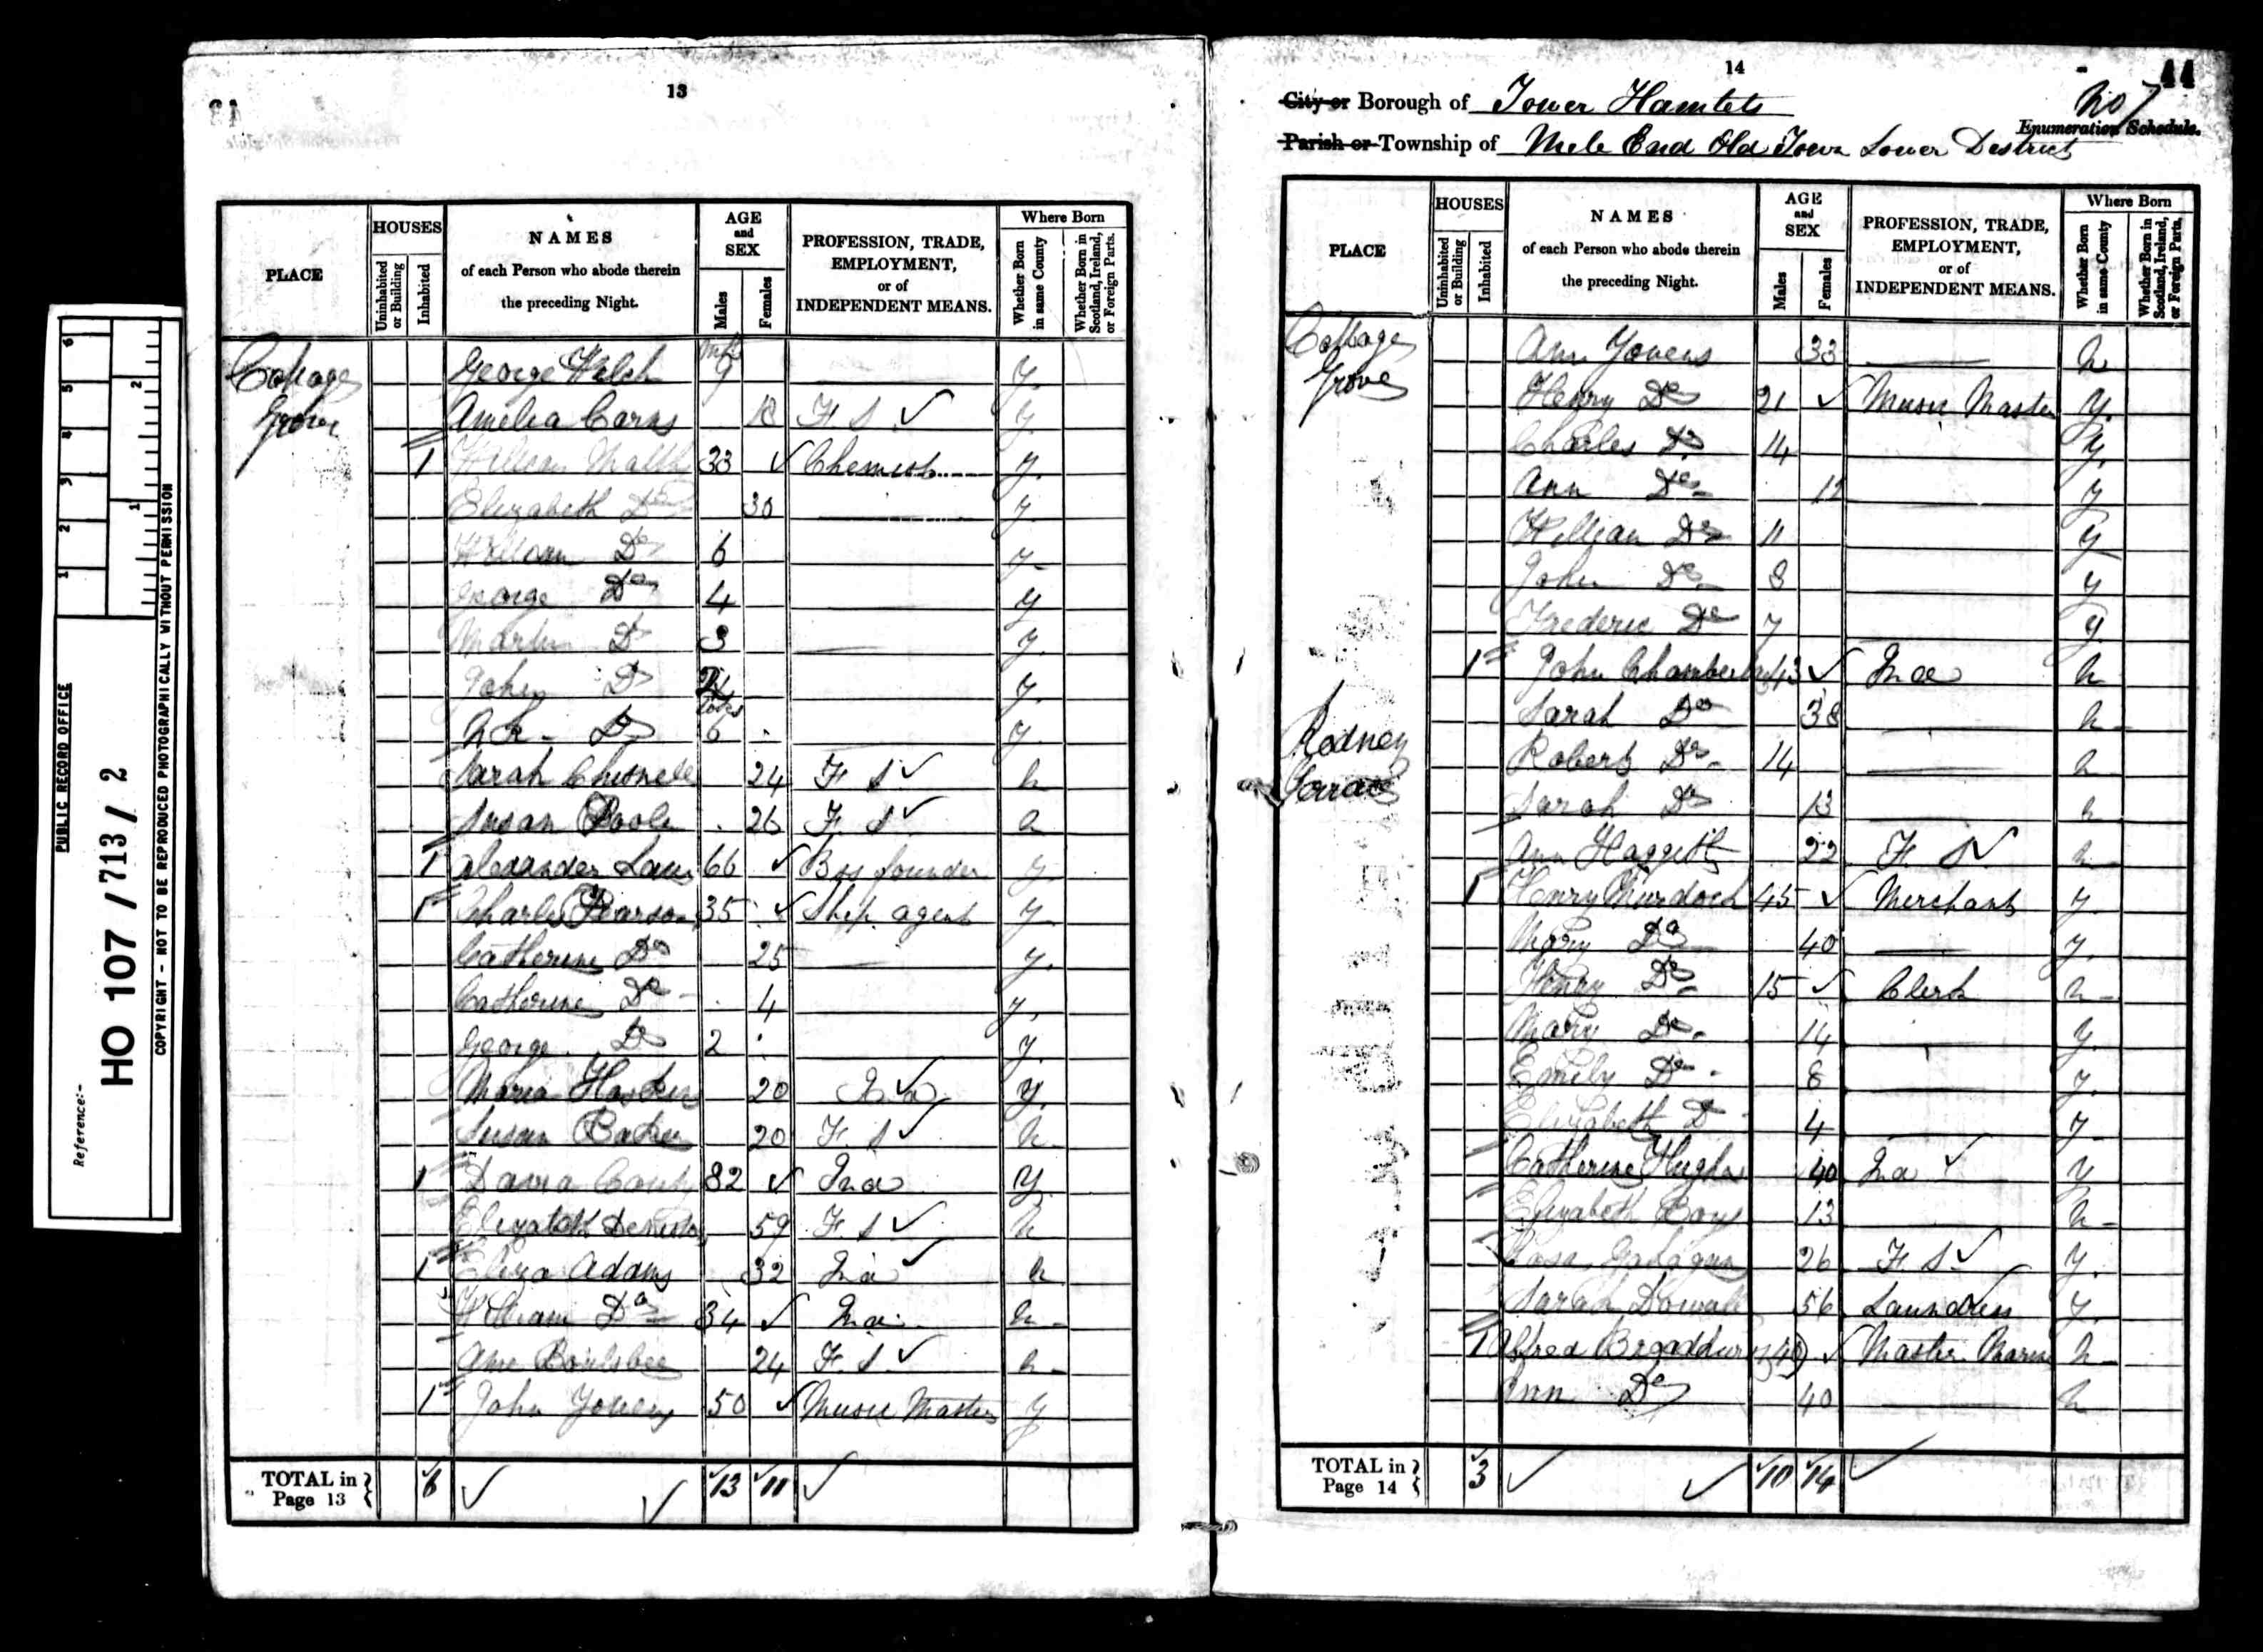 PUBLIC RECORD OFFICE
Reference:-
HO 107 / 713 / 2
COPYRIGHT - NOT TO BE REPRODUCED PHOTOGRAPHICALLY WITHOUT PERMISSION
1 2 3 4 5 6
1 2
13
PLACE
HOUSES
Uninhabited or Building
Inhabited
NAMES
of each Person who abode therein
the preceding Night.
AGE
and
SEX
Males
Females
PROFESSION, TRADE,
EMPLOYMENT,
or of
INDEPENDENT MEANS.
Where Born
Whether Born in same County
Whether Born in Scotland, Ireland, or Foreign Parts.
Cottage George Welch 9 y
Grove Amelia Carns 18 F S y
1 William 33 Chemist y
Elizabeth Do 30 y
William Do 6 y
George Do 4 y
Martin Do 3 y
John Do 2 y
Do 6 y
Sarah 24 F S n
Susan Poole 26 F S n
1 Alexander 66 founder y
1 Charles Pearson 35 Ship agent y
Catherine Do 25 y
Catherine Do 4 y
George Do 2 y
Maria 20 y
Susan Baker 20 F S n
1 82 Ind y
Elizabeth 59 F S n
1 Eliza Adams 32 Ind n
William Do 34 Ind n
Ann 24 F S n
1 John Youens 50 Music Master y
TOTAL in
Page 13 6 13 11
14
44
City or Borough of Tower Hamlets
No 7
Enumeration Schedule.
Parish or Township of Mile End Old Town Lower District
PLACE
HOUSES
Uninhabited or Building
Inhabited
NAMES
of each Person who abode therein
the preceding Night.
AGE
and
SEX
Males
Females
PROFESSION, TRADE,
EMPLOYMENT,
or of
INDEPENDENT MEANS.
Where Born
Whether Born in same County
Whether Born in Scotland, Ireland, or Foreign Parts.
Cottage Ann Youens 33 n
Grove Henry Do 21 Music Master y
Charles Do 14 y
Ann Do 12 y
William Do 11 y
John Do 8 y
Frederic Do 7 y
1 John Chamberlain 43 Ind n
Sarah Do 38 n
Rodney Robert Do 14 n
Terrace Sarah Do 13 n
Ann Haggett 22 F S n
1 Henry Murdoch 45 Merchant y
Mary Do 40 y
Henry Do 15 Clerk n
Mary Do 14 y
Emily Do 8 y
Elizabeth Do 4 y
Catherine Hughes 40 Ind y
Elizabeth Boys 13 n
26 F S y
Sarah 56 Laundress y
1 Alfred 40 Master n
Ann Do 40 n
TOTAL in
Page 14 3 10 14